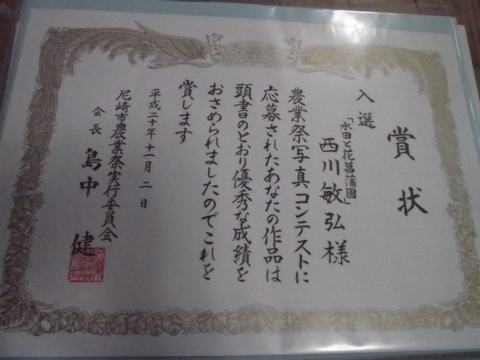 賞状
入選
「水田と花菖蒲園」
西川敏弘様
農業祭写真コンテストに
応募されたあなたの作品は
頭書のとおり優秀な成績を
おさめられましたのでこれを
賞します
平成二十年十一月二日
尼崎市農業祭実行委員会
会長 島中健